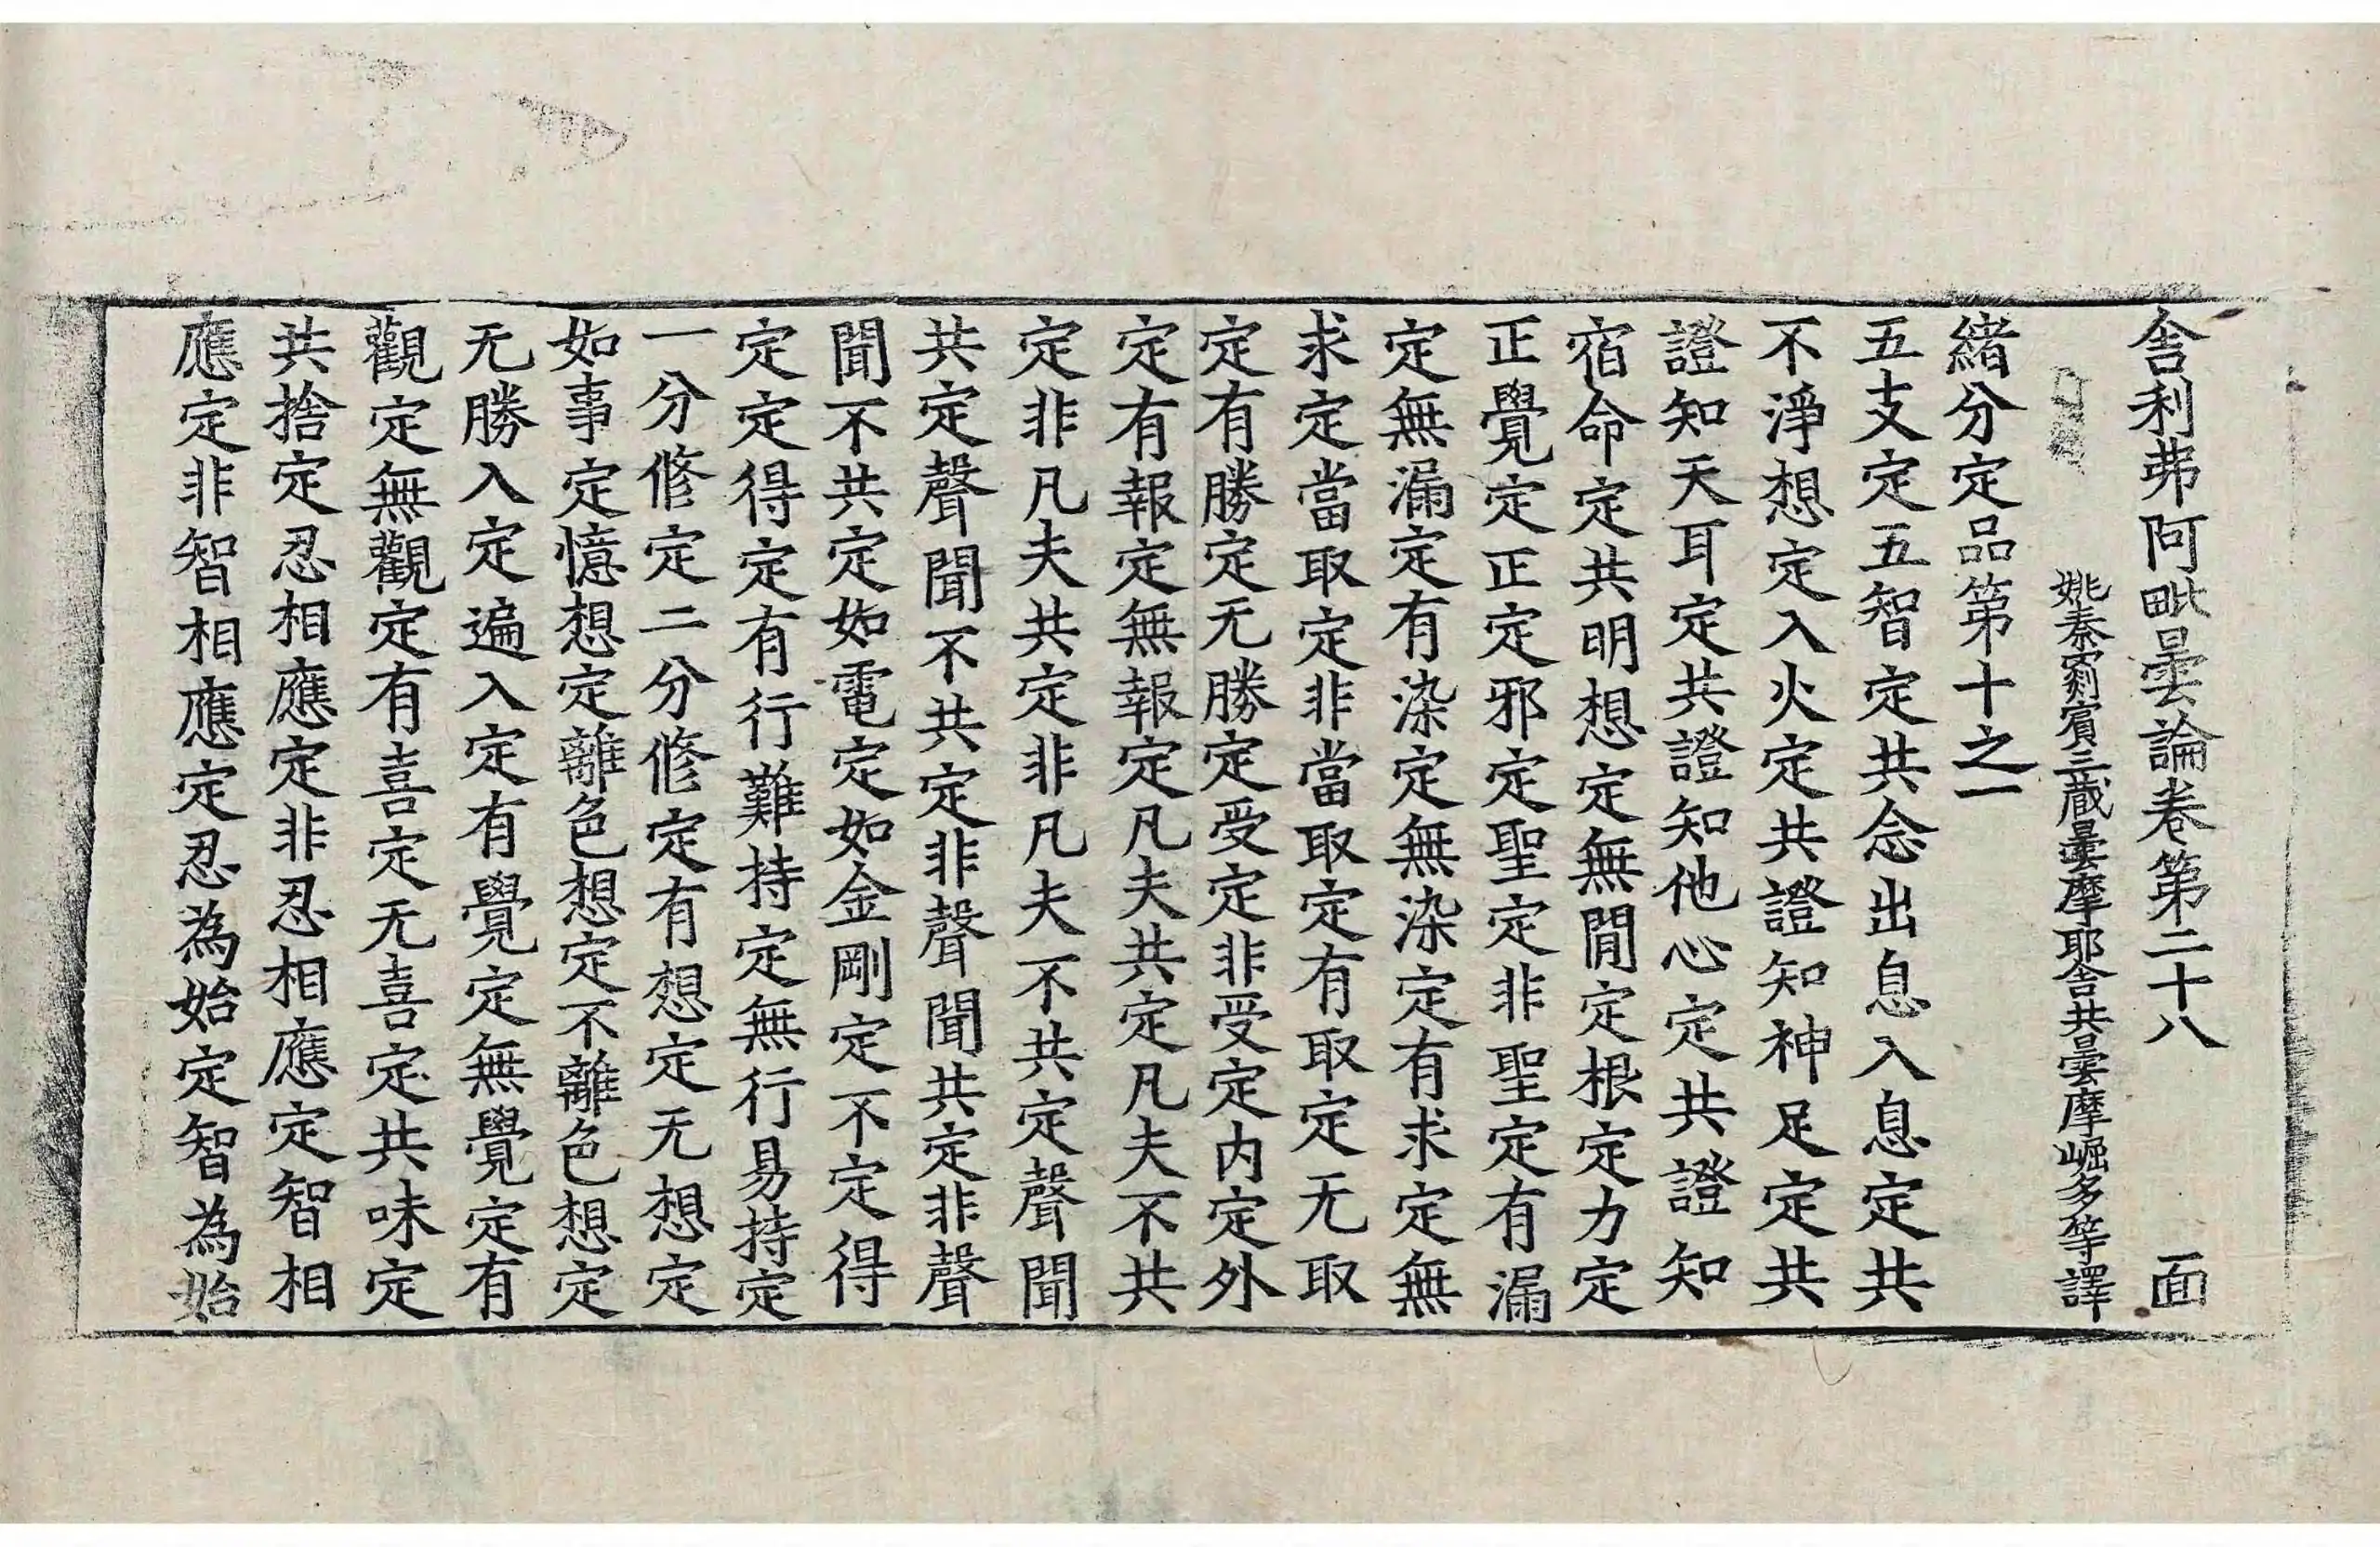 舎利弗阿毗曇論卷第二十八 面
姚秦罽賓三蔵曇摩耶舎共曇摩崛多等譯
緒分定品第十之一
五支定五智定共念出息入息定共
不淨想定入火定共證知神足定共
證知天耳定共證知他心定共證知
宿命定共明想定無閒定根定力定
正覺定正定邪定聖定非聖定有漏
定無漏定有染定無染定有求定無
求定當取定非當取定有取定无取
定有勝定无勝定受定非受定内定外
定有報定無報定凡夫共定凡夫不共
定非凡夫共定非凡夫不共定聲聞
共定聲聞不共定非聲聞共定非聲
聞不共定如電定如金剛定不定得
定定得定有行難持定無行易持定
一分修定二分修定有想定无想定
如事定憶想定離色想定不離色想定
无勝入定遍入定有覺定無覺定有
觀定無觀定有喜定无喜定共味定
共捨定忍相應定非忍相應定智相
應定非智相應定忍為始定智為始